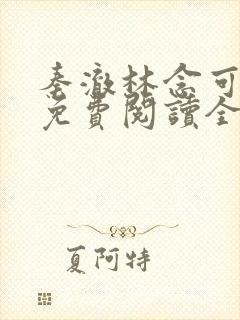 秦澈林念可
免費閱讀全
夏阿特